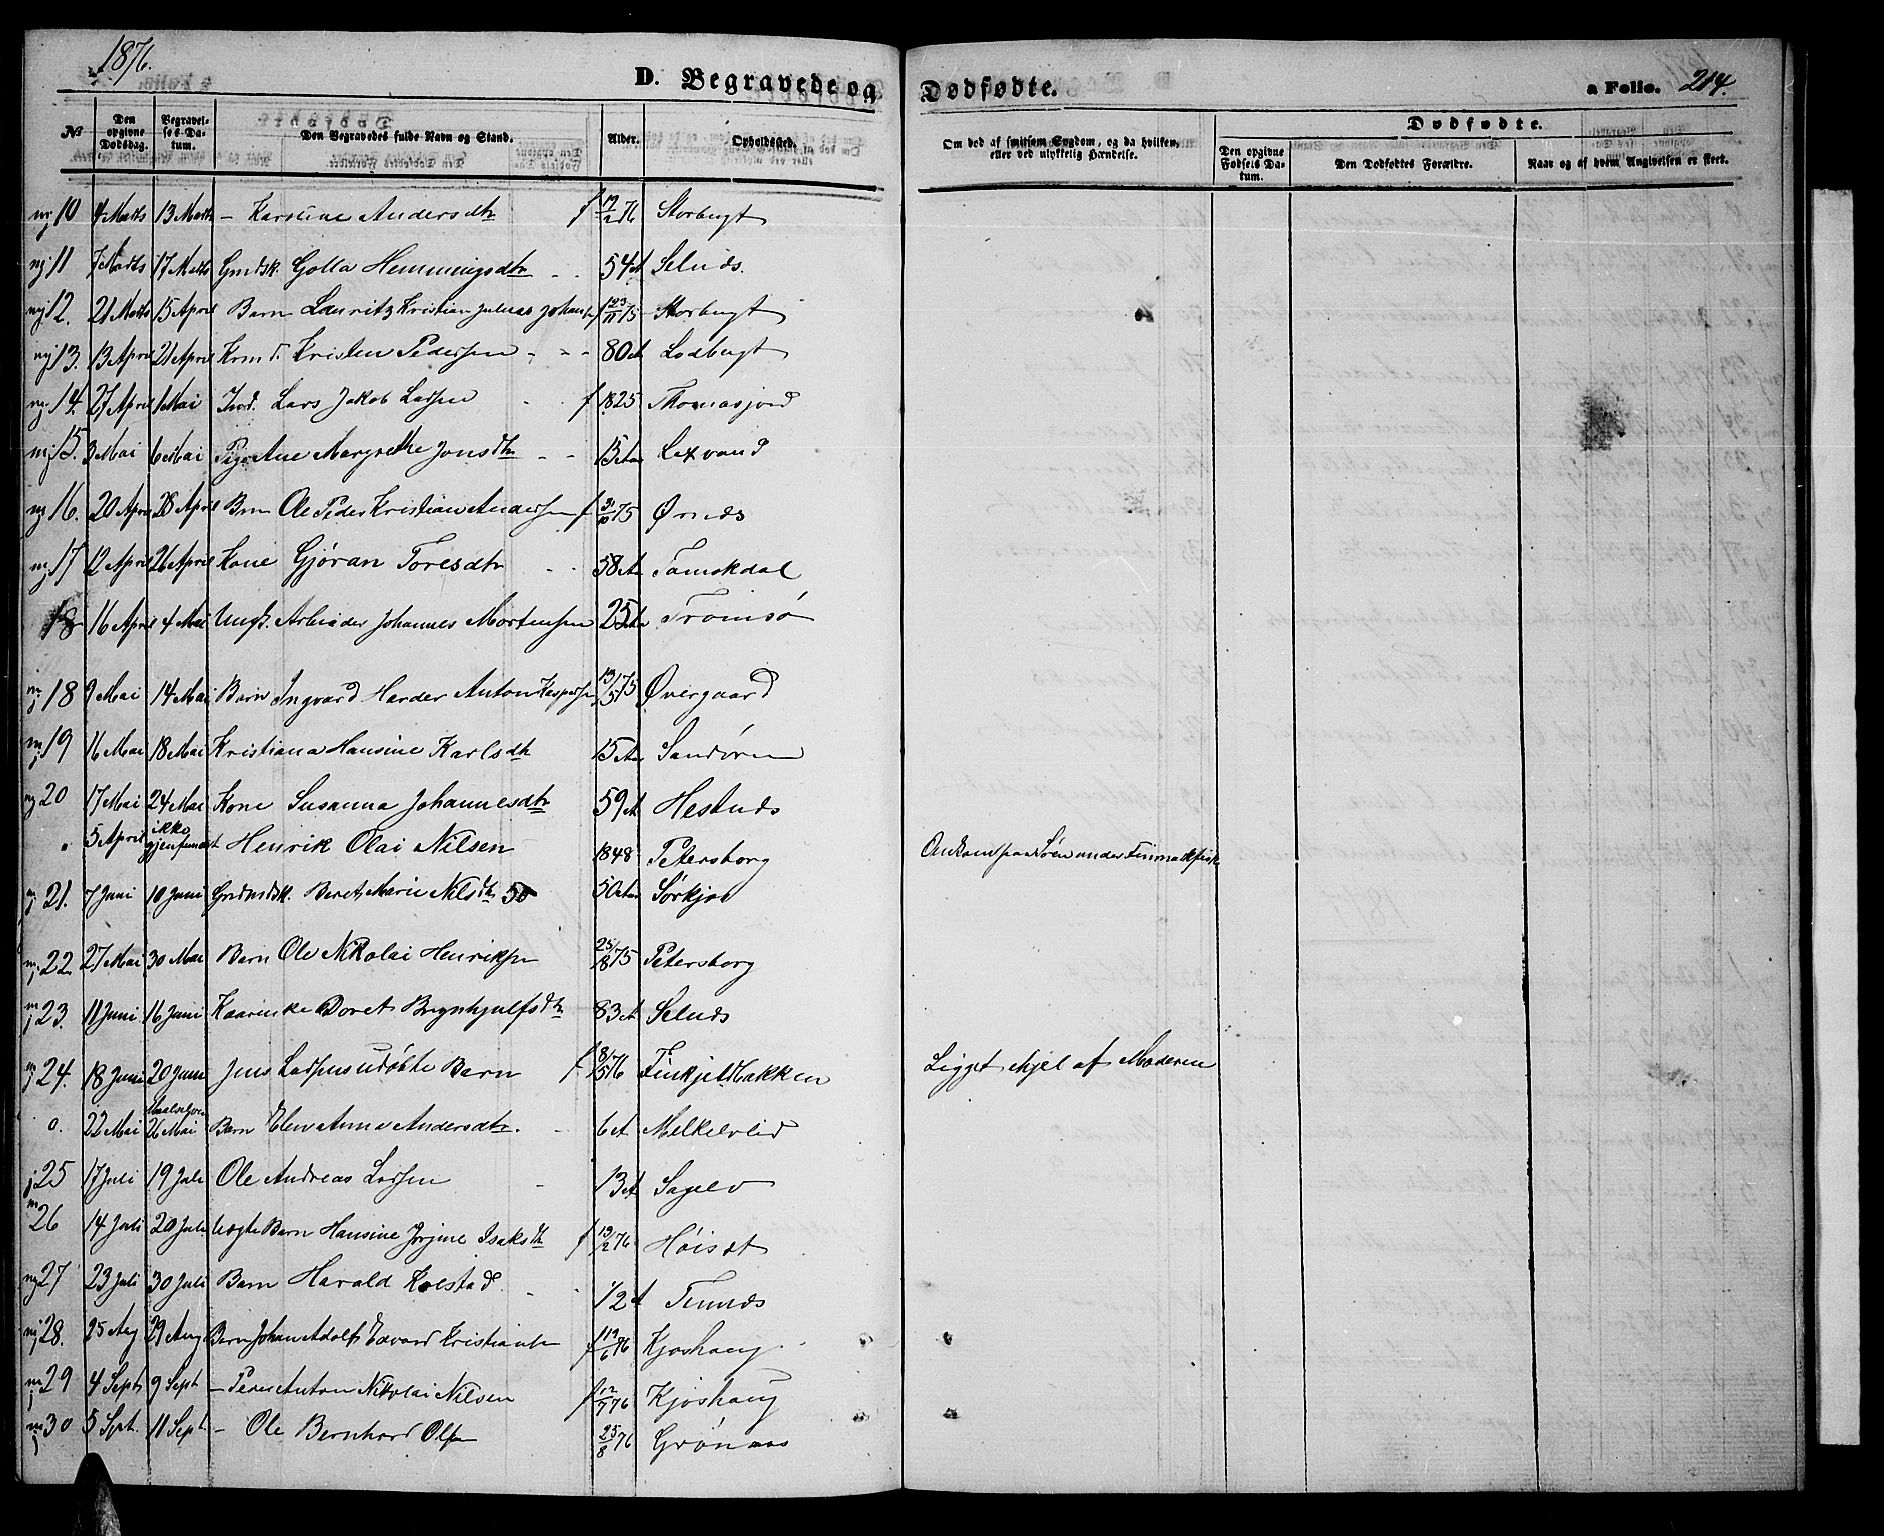 1876.
D. Begravede og Dødfødte.
a Folio. 214.
No
Den opgivne Dødsdag.
Begravelses-Datum.
Den Begravedes fulde Navn og Stand.
Alder.
Opholdssted.
Om død af smitsom Sygdom, og da hvilken, eller ved ulykkelig Hændelse.
Dødfødte.
Den opgivne Fødsels Datum.
Den Dødfødtes Forældre.
Naar og af hvem Angivelsen er skeet.
10 4 Marts 13 Marts - Karoline Andersdtr f 19/2 76 Storbugt
11 7 Marts 17 Marts Gmdsk. Golla Hemmingsdtr 54 A Selnds.
12. 21 Marts 15 April Barn Lauritz Kristian Julius Johans f 23/11 75 Storbugt
13. 13 April 21 April Kristen Pedersen 80 A Lodbugt
14. 27 April 1 Mai Ind. Lars Jakob Larsen f 1825 Thomasjord
15. 3 Mai 6 Mai Pige Ane Margrethe Jonsdtr 15 Aar Laxvand
16. 20 April 28 April Brn Ole Peder Kristian Andersen f 31/10 75 Ørnds
17 12 April 26 April Kone Gjøran Toresdtr 58 Aar Tamokdal
18 16 April 4 Mai Ungk. Arbeider Johannes Mortensen 25 Aar Tromsø
18 9 Mai 14 Mai Barn Ingvard Harder Anton Kaspersen 13/5 75 Øvergaard
19 16 Mai 18 Mai Kristiana Hansine Karlsdtr 15 Aar Sandøren
20 17 Mai 24 Mai Kone Susanna Johannesdtr 59 A Hestnds
5 April ikke gjenfundet Henrik Olai Nilsen 1848 Petersborg Omkom paa Søen under Finmarkfisk
21. 7 Juni 10 Juni Grdmdsk. Beret Marie Nilsdtr 50 50 Aar Sørkjos
22 27 Mai 30 Mai Barn Ole Nikolai Henriksen 25/8 75 Petersborg
23. 11 Juni 16 Juni Kaarinke Doret Brynhjulfsdtr 83 A Selnds
24. 18 Juni 20 Juni Jens Larsens udøbte Barn f 8/5 76 Finkjeldbakken Ligget ihjel af Moderen
0. 22 Mai Maalselven 26 Mai Barn Elen Anna Andersdtr. 6 A Melkelvlid
25 17 Juli 19 Juli Ole Andreas Larsen 13 A Sagelv
26 14 Juli 20 Juli Uægte Barn Hansine Jørgine Isaksdtr f 13/2 76 Høisdt
27 23 Juli 30 Juli Barn Harald Kolstad 12 A Tennds
28. 25 Aug 29 Aug Barn Johan Adolf Edvard Kristiansen f 19/6 76 Kjoshaug
29 4 Sept 9 Sept - Peder Anton Nikolai Nilsen f 12/7 76 Kjoshaug
30 5 Spt. 11 Sept - Ole Bernhard Olsen 25/8 76 Grønaas